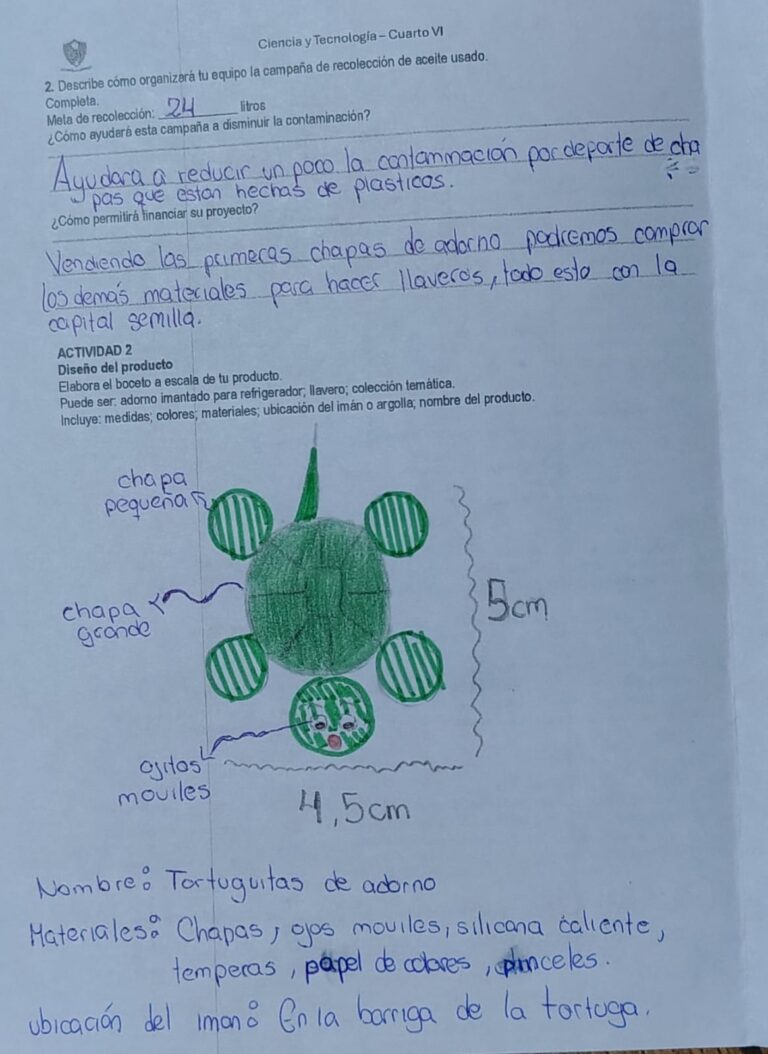 Ciencia y Tecnología – Cuarto VI
2. Describe cómo organizará tu equipo la campaña de recolección de aceite usado.
Completa.
Meta de recolección: 24 litros
¿Cómo ayudará esta campaña a disminuir la contaminación?
Ayudara a reducir un poco la contaminación por deporte de cha
pas que estan hechas de plasticos.
¿Cómo permitirá financiar su proyecto?
Vendiendo las primeras chapas de adorno podremos comprar
los demás materiales para hacer llaveros, todo esto con la
capital semilla.
ACTIVIDAD 2
Diseño del producto
Elabora el boceto a escala de tu producto.
Puede ser: adorno imantado para refrigerador; llavero; colección temática.
Incluye: medidas; colores; materiales; ubicación del imán o argolla; nombre del producto.
chapa
pequeña
chapa
grande
5cm
ojitos
moviles
4,5cm
Nombre: Tortuguitas de adorno
Materiales: Chapas, ojos moviles, silicona caliente,
temperas, papel de colores, pinceles.
ubicación del iman: En la barriga de la tortuga.